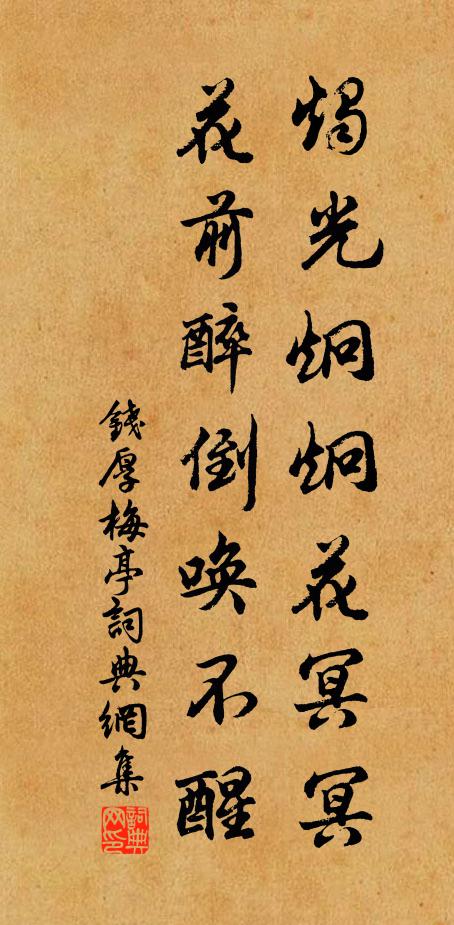 燭光炯炯花冥冥
花前醉倒喚不醒
錢厚梅亭詞典網集
詞典網印